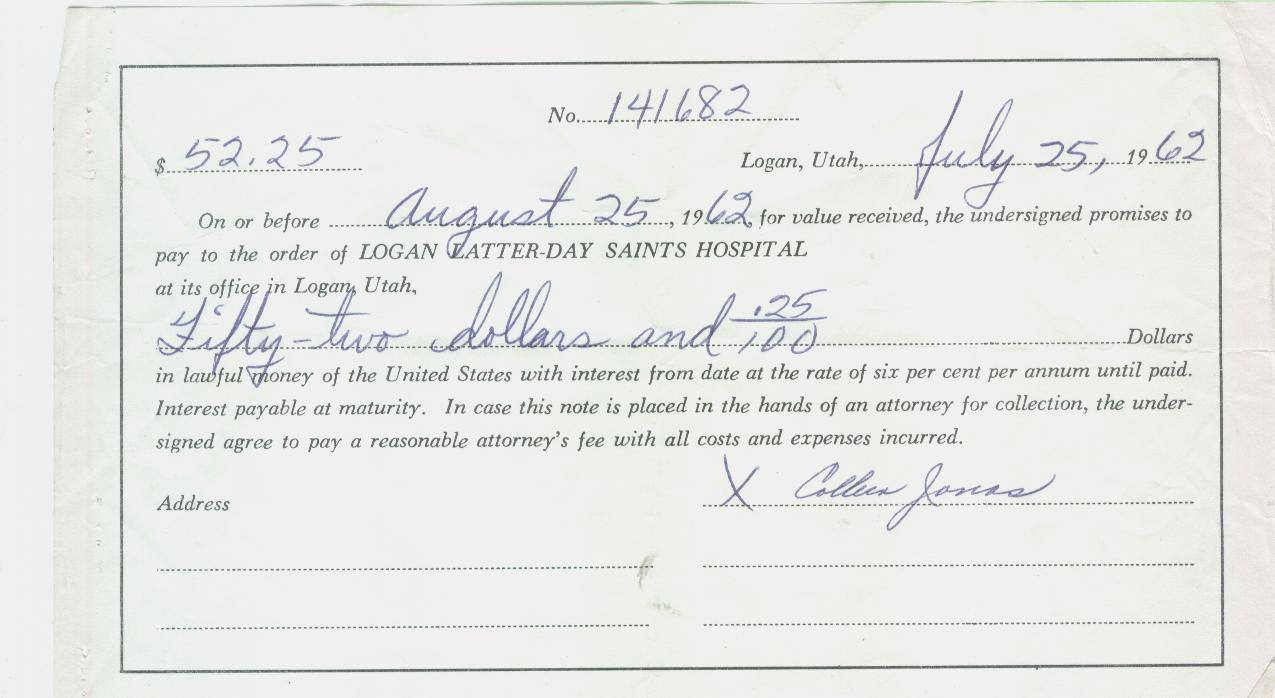 No. 141682
$ 52.25 Logan, Utah, July 25, 1962
On or before August 25, 1962, for value received, the undersigned promises to
pay to the order of LOGAN LATTER-DAY SAINTS HOSPITAL
at its office in Logan, Utah,
Fifty-two dollars and .25/100 Dollars
in lawful money of the United States with interest from date at the rate of six per cent per annum until paid.
Interest payable at maturity. In case this note is placed in the hands of an attorney for collection, the under-
signed agree to pay a reasonable attorney's fee with all costs and expenses incurred.
X Jonas
Address